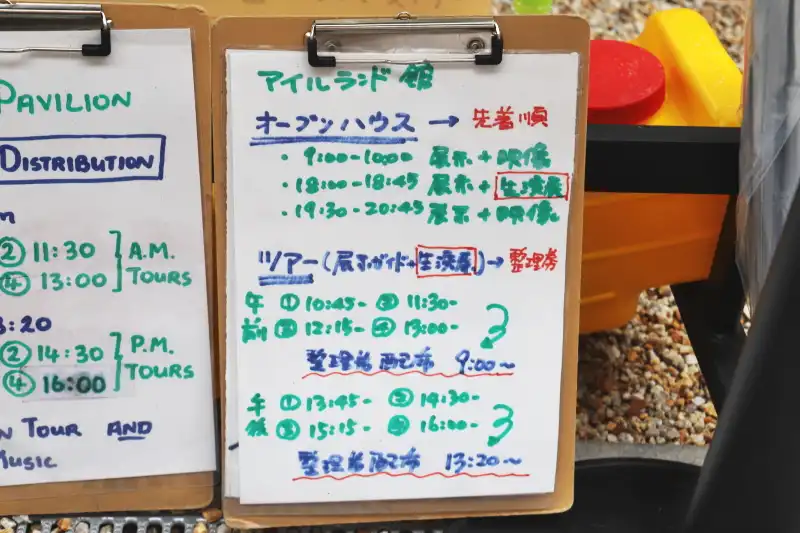 PAVILION
DISTRIBUTION
② 11:30
④ 13:00
A.M.
TOURS
:20
② 14:30
④ 16:00
P.M.
TOURS
N TOUR AND
MUSIC
アイルランド館
オープンハウス → 先着順
・9:00-10:00 展示+映像
・18:00-18:45 展示+生演奏
・19:30-20:45 展示+映像
ツアー(展示ガイド+生演奏)→整理券
午前 ①10:45- ②11:30-
③12:15- ④13:00-
整理券配布 9:00~
午後 ①13:45- ②14:30-
③15:15- ④16:00-
整理券配布 13:20~